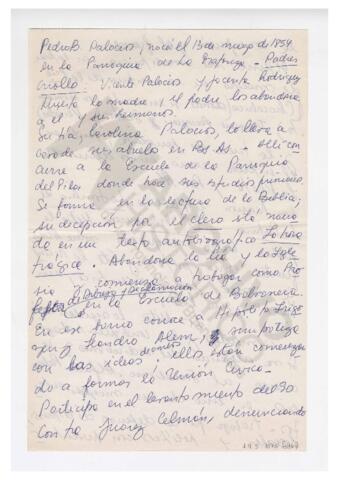 Pedro B Palacios, nació el 13 de mayo de 1854
en la Parroquia de La Matanza - Padres
criollo Vicente Palacios y Jacinta Rodríguez
Muerta la madre, el padre los abandona
a él y sus hermanos.
Su tía, Carolina Palacios, lo lleva a
casa de sus abuelos en Bs. As. - Allí con
curre a la Escuela de la Parroquia
del Pilar donde hace sus estudios primarios
Se forma en la lectura de la Biblia;
su decepción por el clero está narra
da en un texto autobiográfico La hora
trágica. Abandona la fe y la Igle
sia y comienza a trabajar como Pro
fesor de Dibujo y Declamación en la Escuela de Balvanera.
En ese barrio conoce a Hipólito Irigo
yen y Leandro Alem, simpatiza
con las ideas de estos ellos están comenzan
do a formar la Unión Cívica
Participa en el levantamiento del 90
contra Juárez Celman, denunciando